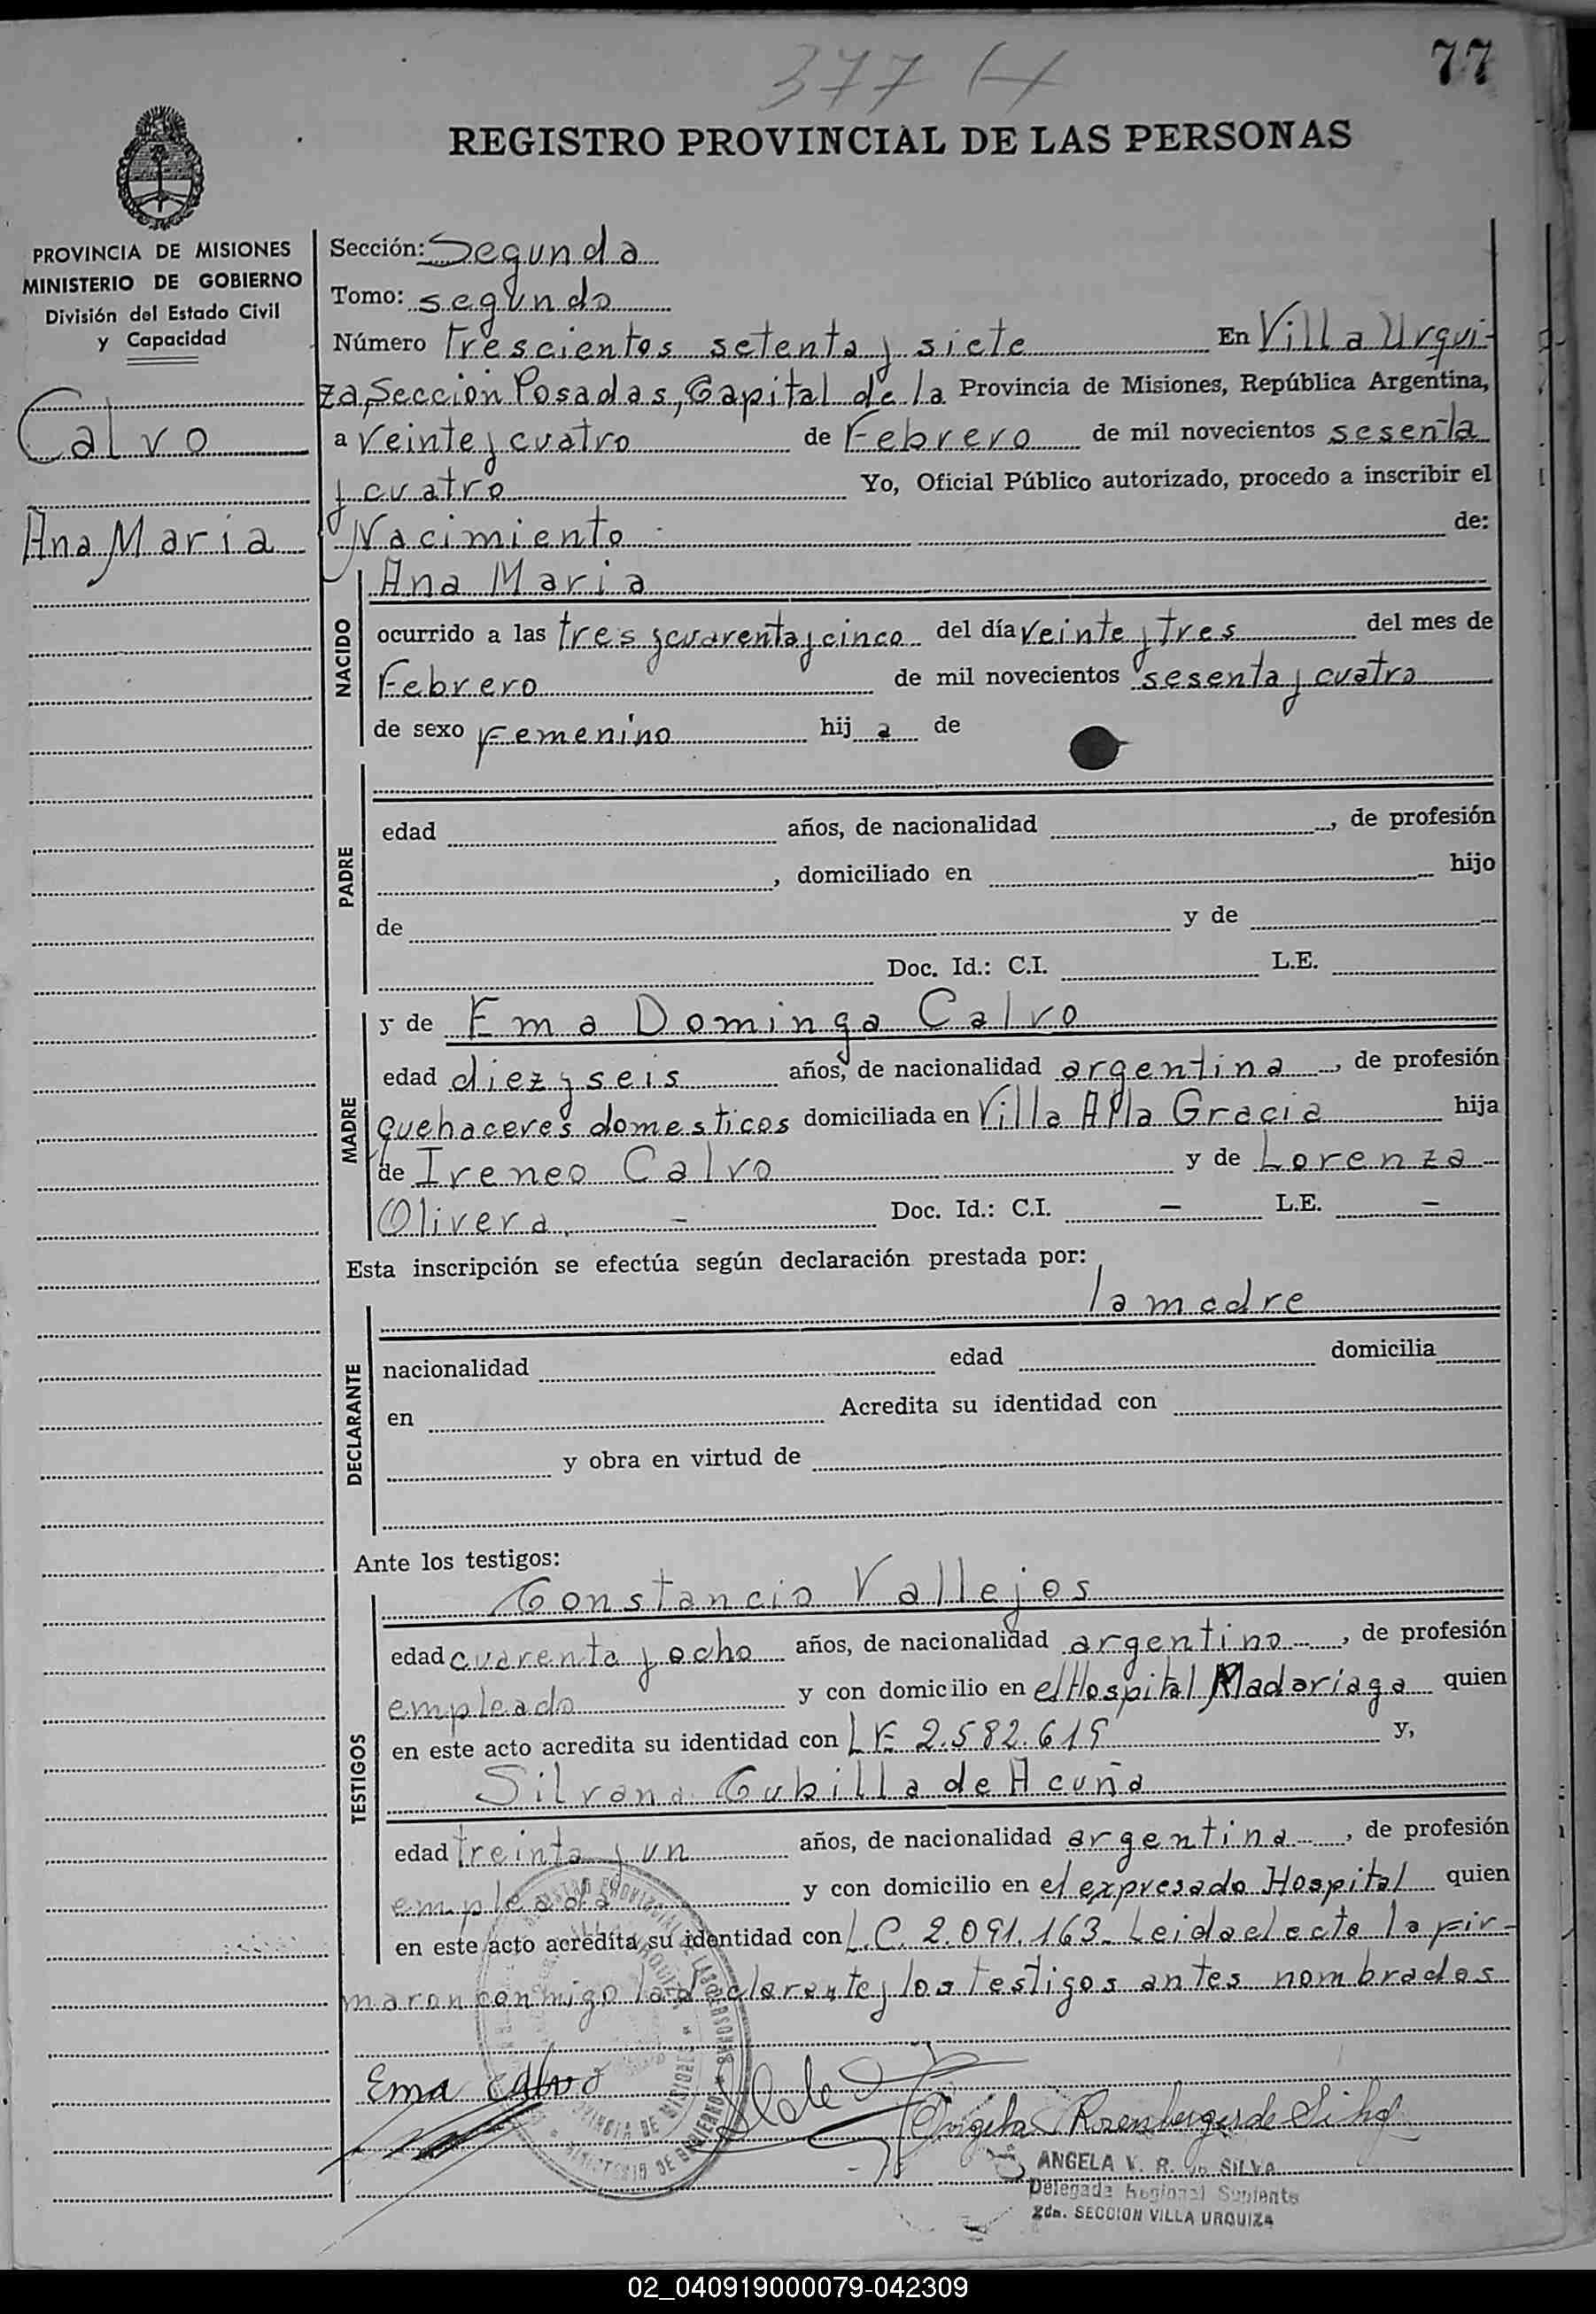 377
77
REGISTRO PROVINCIAL DE LAS PERSONAS
PROVINCIA DE MISIONES
MINISTERIO DE GOBIERNO
División del Estado Civil
y Capacidad
Calvo
Ana Maria
Sección: Segunda
Tomo: segundo
Número Trescientos setenta y siete En Villa Urqui-
za, Sección Posadas, Capital de la Provincia de Misiones, República Argentina,
a Veinte y cuatro de Febrero de mil novecientos sesenta
y cuatro Yo, Oficial Público autorizado, procedo a inscribir el
Nacimiento de:
NACIDO
Ana Maria
ocurrido a las tres y cuarenta y cinco del día veinte y tres del mes de
Febrero de mil novecientos sesenta y cuatro
de sexo Femenino hij a de
PADRE
edad años, de nacionalidad , de profesión
, domiciliado en hijo
de y de
Doc. Id.: C.I. L.E.
MADRE
y de Ema Dominga Calvo
edad diez y seis años, de nacionalidad argentina , de profesión
quehaceres domesticos domiciliada en Villa Alta Gracia hija
de Ireneo Calvo y de Lorenza
Olivera - Doc. Id.: C.I. - L.E. -
Esta inscripción se efectúa según declaración prestada por:
DECLARANTE
la madre
nacionalidad edad domicilia
en Acredita su identidad con
y obra en virtud de
Ante los testigos:
TESTIGOS
Constancio Vallejos
edad cuarenta y ocho años, de nacionalidad argentino , de profesión
empleado y con domicilio en el Hospital Madariaga quien
en este acto acredita su identidad con LE 2.582.619 y,
Silvana Cubilla de Acuña
edad treinta y un años, de nacionalidad argentina , de profesión
empleada y con domicilio en el expresado Hospital quien
en este acto acredita su identidad con L.C. 2.091.163. Leida el acta la fir-
maron conmigo la declarante y los testigos antes nombrados
Ema Calvo
Angela Rosenberger de Silva
ANGELA V. R. de SILVA
Delegada Regional Suplente
2da. SECCION VILLA URQUIZA
02_040919000079-042309